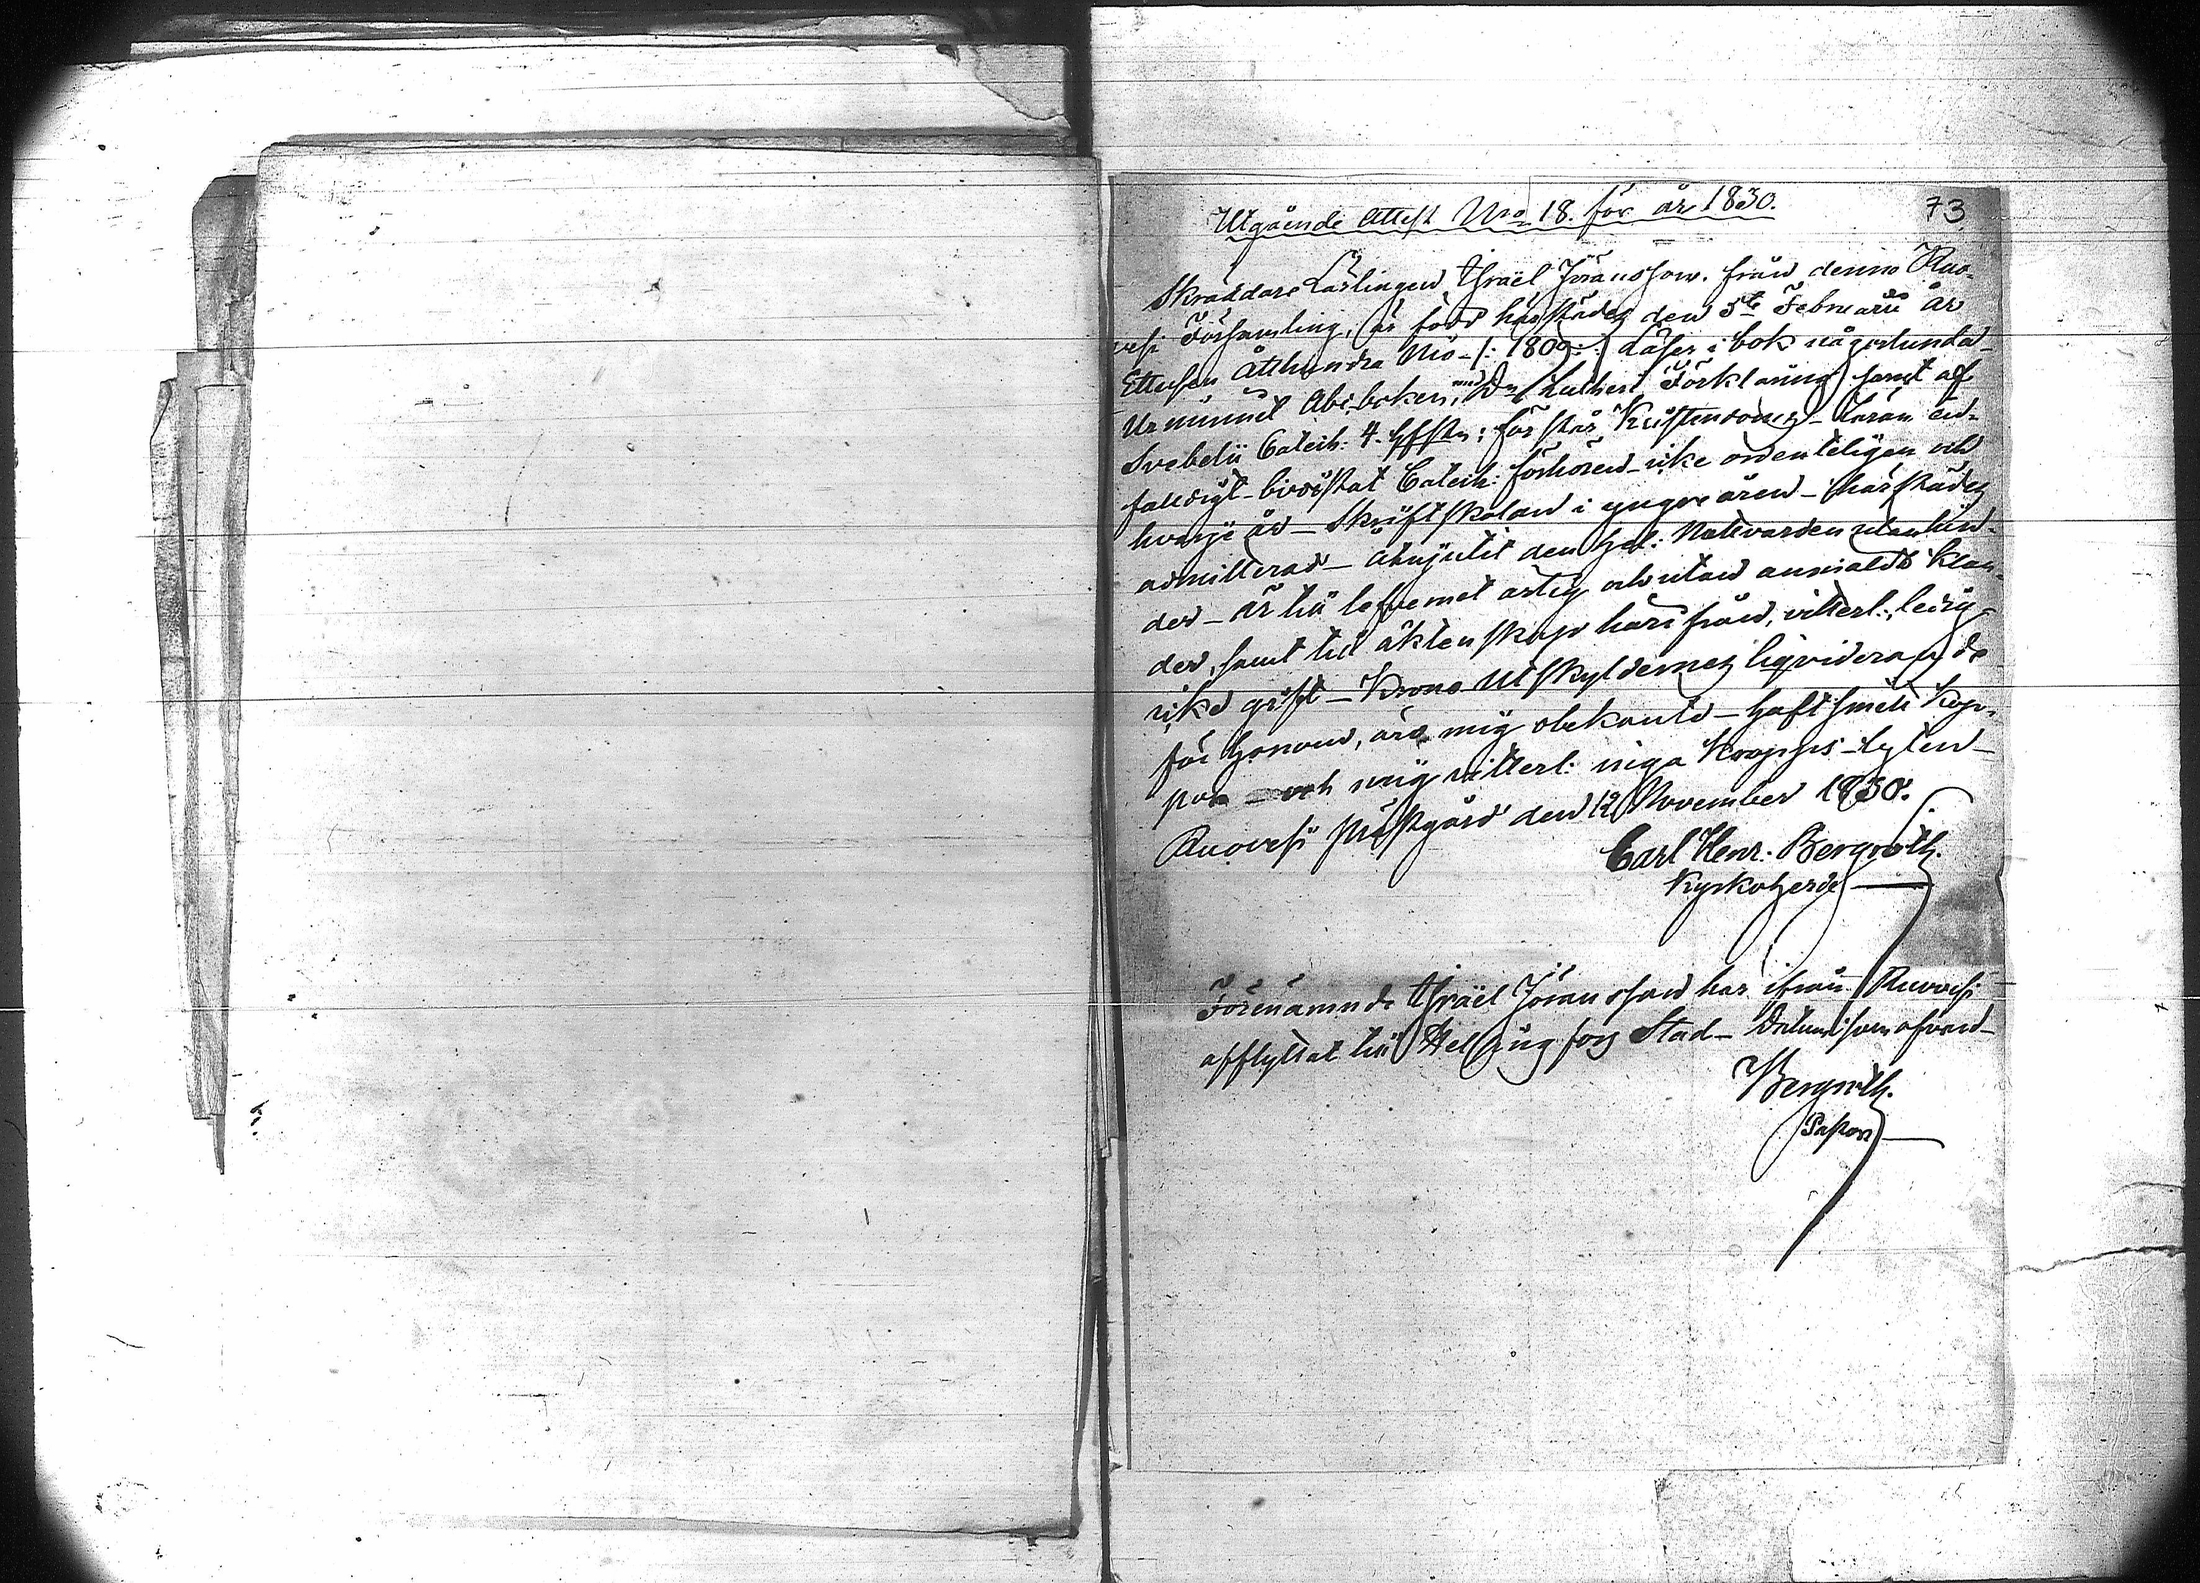 Utgående Attest Nro 18. för år 1830.
73
Skräddare Lärlingen Isräel Jöransson från denna Ruo-
vesi Församling, är född härstädes den 5te Februarii År
Ettusen Åttahundra Nio /: 1809 :/ Läser i bok någorlunda
Ur minnet Abc-boken, med Dr Lutheri Förklaring samt af
Svebelii Catech. 4. : förstår Kristendomens Läran en-
faldigt - bivistat Catech: förhören icke ordenteligen och
hvarje år - Skriftskolan i yngre åren - härstädes
admitterad - åtnjutit den Hel: Nattvarden utan hin-
der - är till lefvernet ärlig och utan anmäldt klan-
der, samt till äktenskap härifrån, vitterl: ledig
icke gift - Krono Utskyldernes liqviderande
för honom, äro mig obekante - Haft små Kop-
por - och mig vitterl: inga Kropps-lyten -
Ruovesi Prästgård den 12 November 1830.
Carl Henr. Bergroth.
Kyrkoherde
Förenämnde Isräel Jöransson har ifrån Ruovesi
afflyttat till Helsingfors Stad - Datum som ofvan -
Bergroth.
Pastor